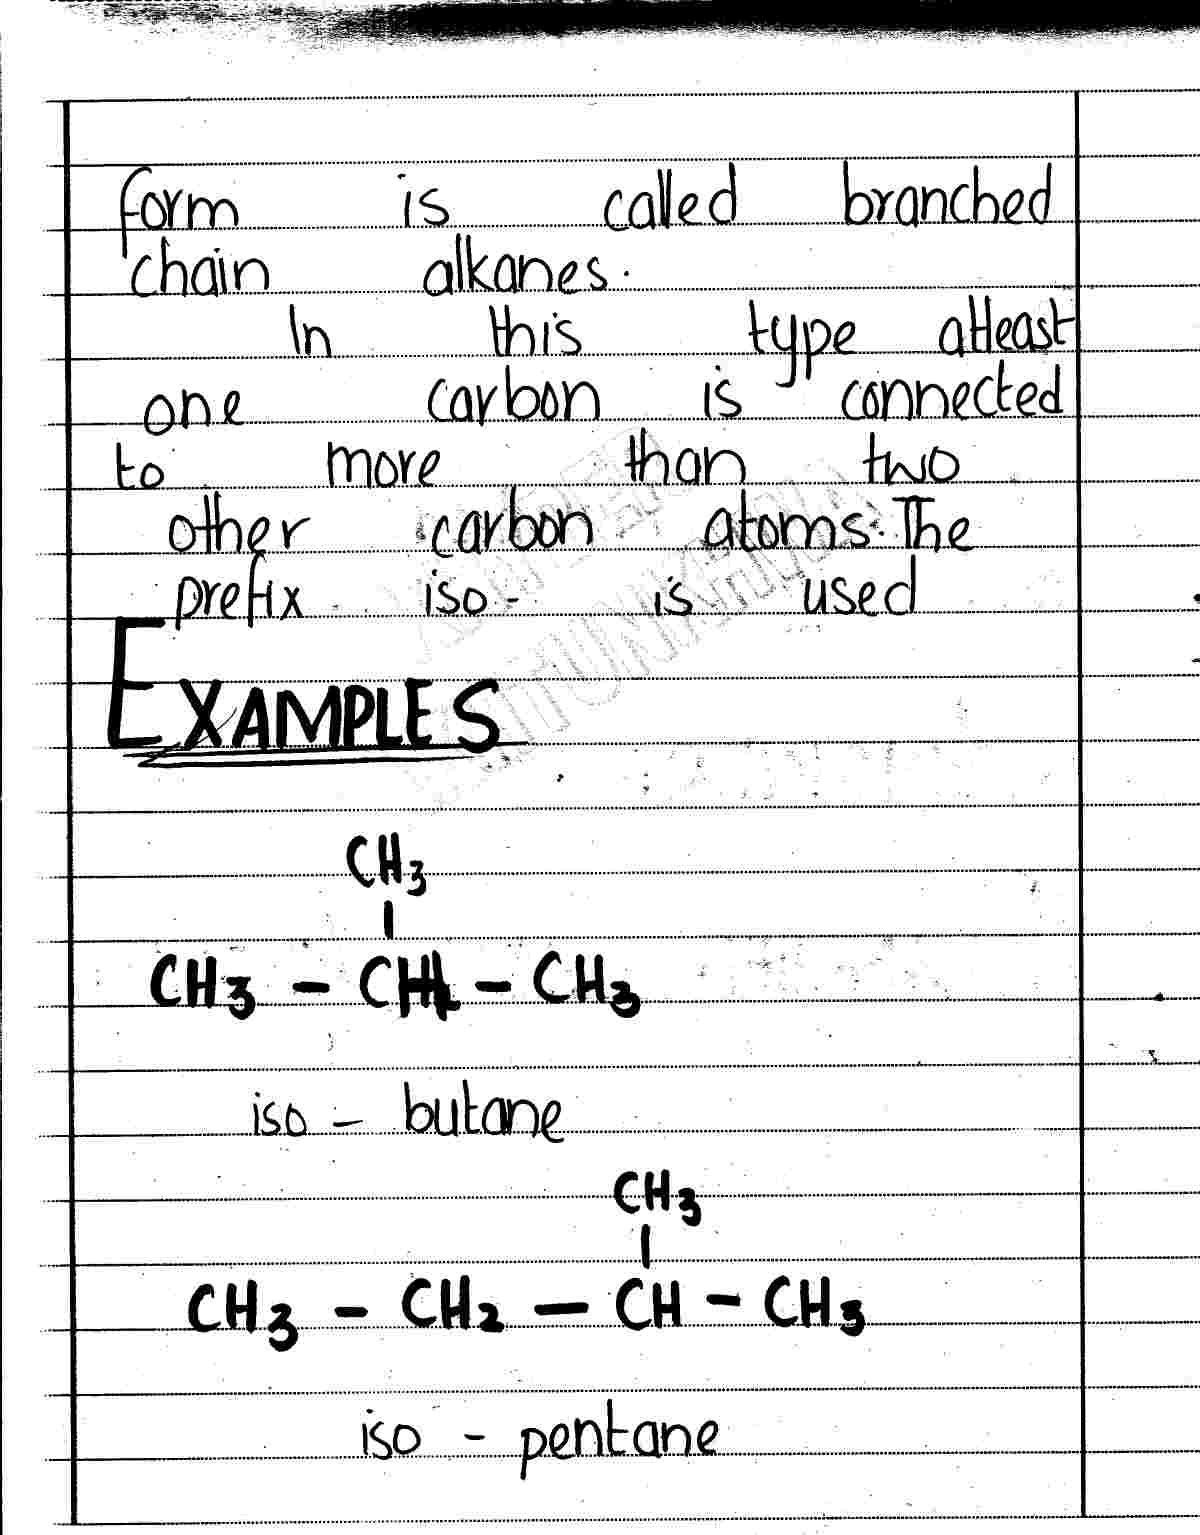 form is called branched
chain alkanes.
In this type atleast
one carbon is connected
to more than two
other carbon atoms. The
prefix iso- is used
EXAMPLES
CH3
CH3 - CH - CH3
iso - butane
CH3
CH3 - CH2 - CH - CH3
iso - pentane